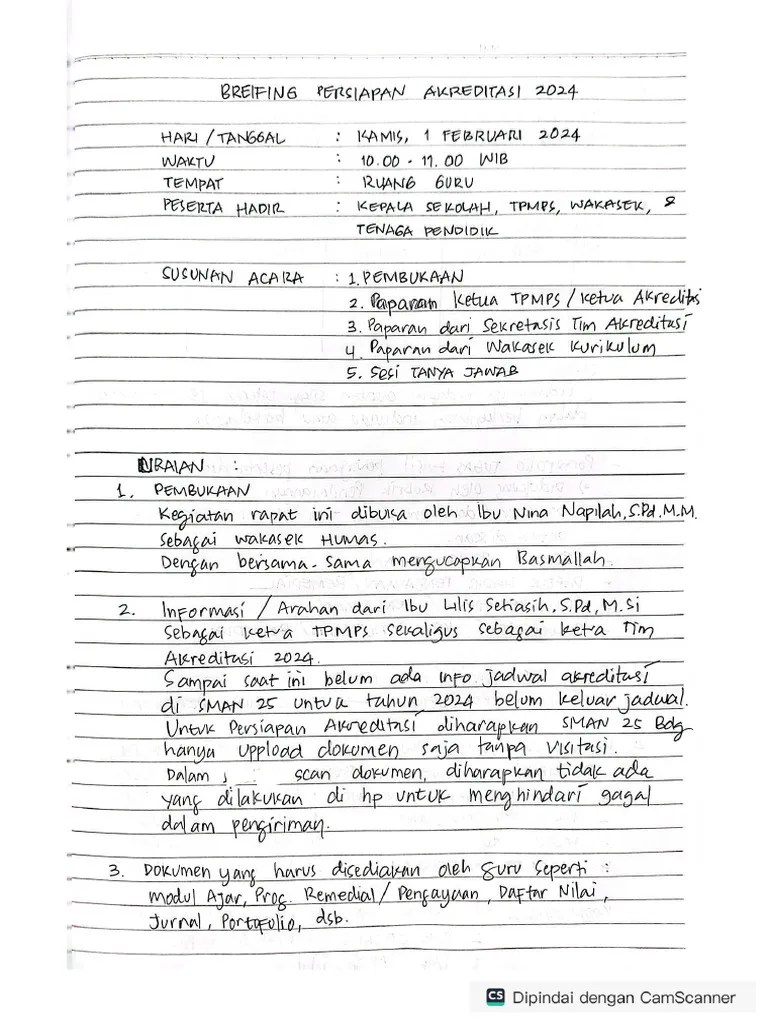 BREIFING PERSIAPAN AKREDITASI 2024
HARI / TANGGAL : KAMIS, 1 FEBRUARI 2024
WAKTU : 10.00 - 11.00 WIB
TEMPAT : RUANG GURU
PESERTA HADIR : KEPALA SEKOLAH, TPMPS, WAKASEK, &
TENAGA PENDIDIK
SUSUNAN ACARA : 1. PEMBUKAAN
2. Paparan Ketua TPMPS / Ketua Akreditsi
3. Paparan dari Sekretasis Tim Akreditasi
4. Paparan dari Wakasek Kurikulum
5. Sesi TANYA JAWAB
URAIAN :
1. PEMBUKAAN
Kegiatan rapat ini dibuka oleh Ibu Nina Napilah, S.Pd. M.M.
Sebagai Wakasek HUMAS.
Dengan bersama-sama mengucapkan Basmallah.
2. Informasi / Arahan dari Ibu Lilis Setiasih, S.Pd, M.Si
Sebagai Ketua TPMPS sekaligus sebagai ketua Tim
Akreditasi 2024.
Sampai saat ini belum ada info jadwal akreditasi
di SMAN 25 untuk tahun 2024 belum keluar jadwal.
Untuk Persiapan Akreditasi diharapkan SMAN 25 Bdg
hanya uppload dokumen saja tanpa visitasi.
Dalam scan dokumen, diharapkan tidak ada
yang dilakukan di hp untuk menghindari gagal
dalam pengiriman.
3. Dokumen yang harus disediakan oleh guru seperti :
Modul Ajar, Prog. Remedial / Pengayaan, Daftar Nilai,
Jurnal, Portofolio, dsb.
CS Dipindai dengan CamScanner